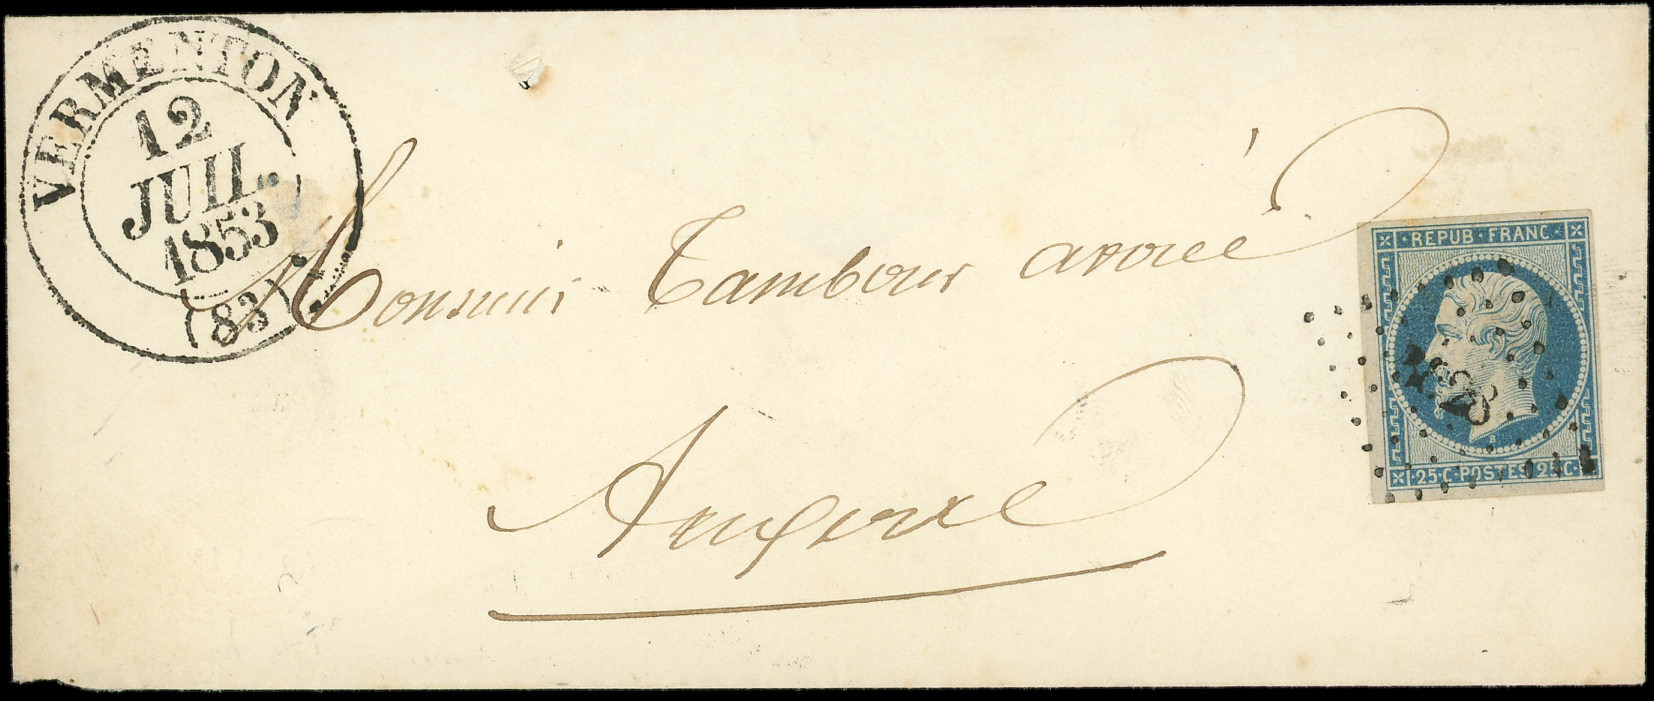 VERMENTON
12
JUIL.
1853
(83)
Monsieur Tambour avoué
Auxerre
REPUB·FRANC·
B
25·C·POSTES·25·C·